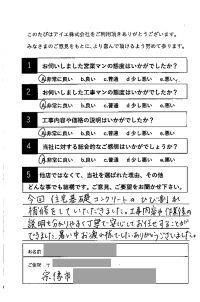 このたびはアイエ株式会社をご利用頂きありがとうございます。
みなさまのご意見をもとに、より喜んで頂けるよう努めて参ります。
1 お伺いしました営業マンの態度はいかがでしたか?
a.非常に良い b.良い c.普通 d.少し悪い e.悪い
2 お伺いしました工事マンの態度はいかがでしたか?
a.非常に良い b.良い c.普通 d.少し悪い e.悪い
3 工事内容や価格の説明はいかがでしたか?
a.非常に良い b.良い c.普通 d.少し悪い e.悪い
4 当社に対する総合的なご感想はいかがでしょうか?
a.非常に良い b.良い c.普通 d.少し悪い e.悪い
5 他店ではなくて、当社を選ばれた理由、その他
どんな事でも結構です。ご意見、ご要望をお聞かせ下さい。
今回住宅基礎コンクリートのひび割れ
補修をしていただきました。工事内容や作業後の
説明も分かりやすく丁寧で安心してお任せすることが
できました。暑い中お疲れ様でした。ありがとうございました。
お名前
ご住所 〒
宗像市